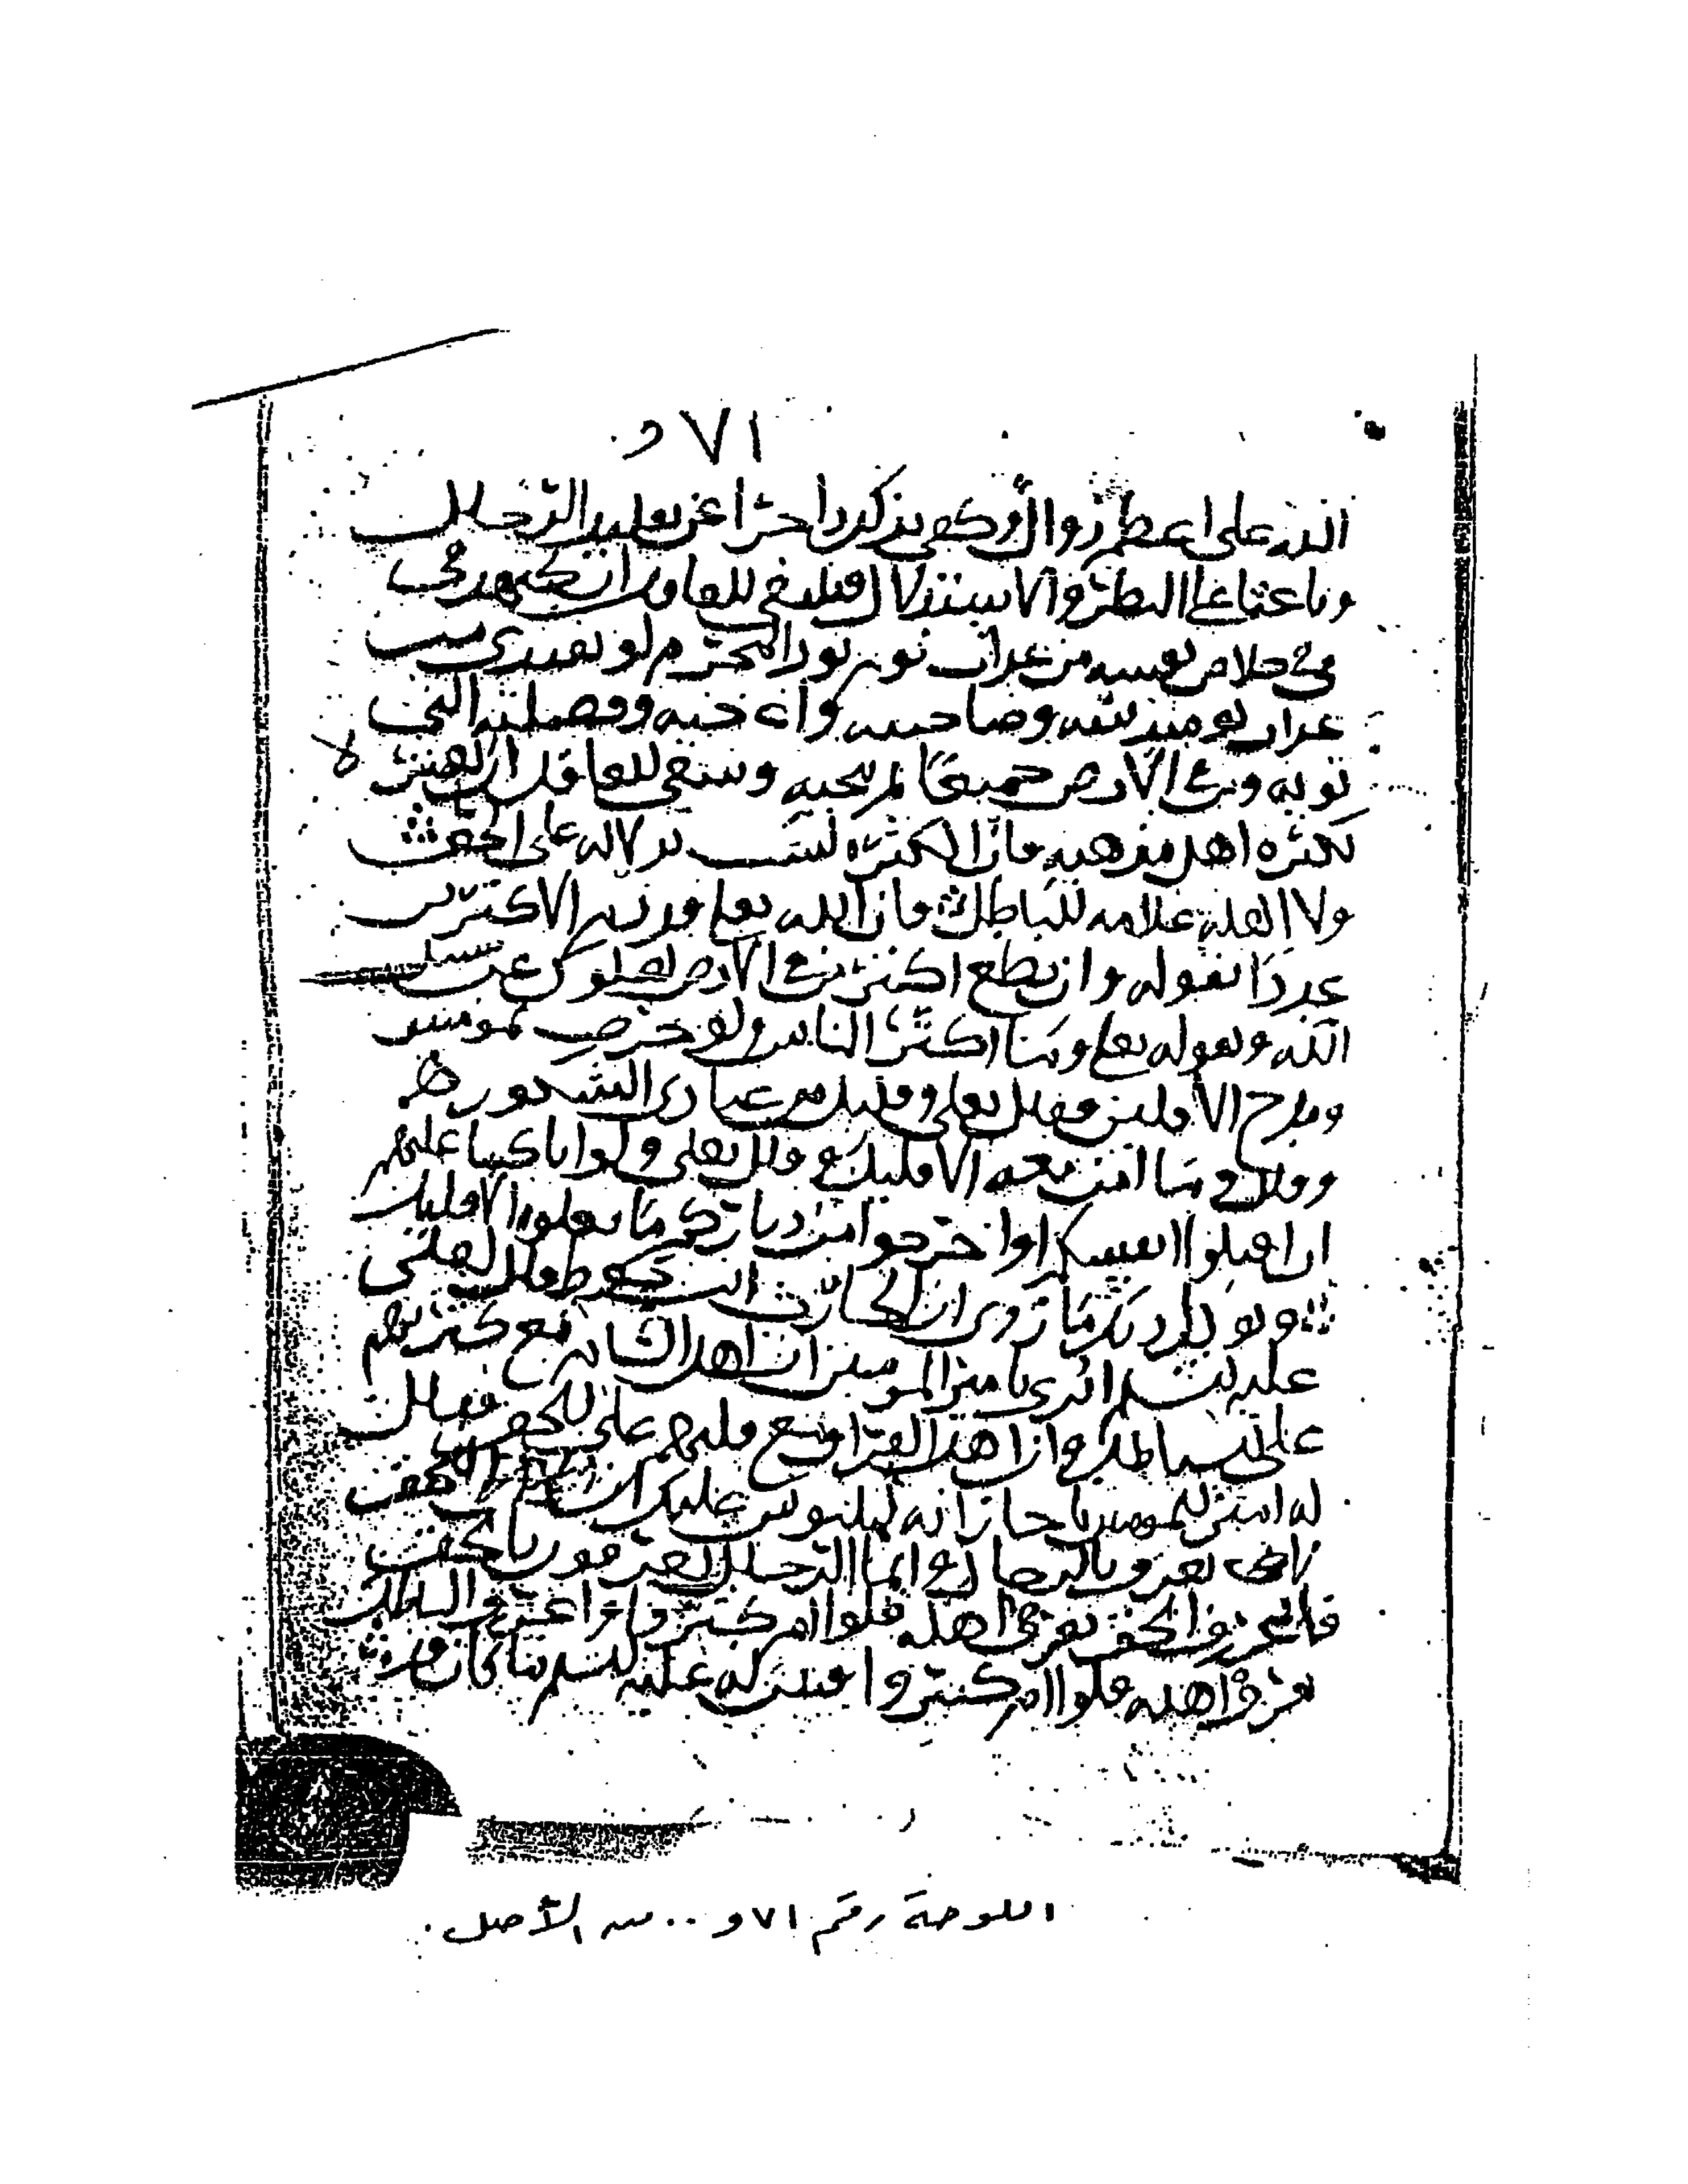 ٧١ و
الدين على اعظم زوال وكفى بذكر زاجرا عن تقليد الرجال
وباعثا على النظر والاستدلال فينبغي للعاقل ان يجتهد في
في خلاص نفسه من عذاب يوم يود المجرم لو يفتدي من
عذاب يومئذ ببنيه وصاحبته واخيه وفصيلته التي
تؤيه ومن في الارض جميعا ثم ينجيه وينبغي للعاقل ان لا يغتر
بكثرة اهل مذهبه فان الكثرة ليست بدلالة على الحق
ولا القلة علامة للباطل فان الله تعلى قد ذم الاكثرين
عددا بقوله وان تطع اكثر من في الارض يضلوك عن سبيل
الله وبقوله تعلى وما اكثر الناس ولو حرصت بمومنين
ومدح الاقلين فقال تعلى وقليل من عبادي الشكور
وقال وما امن معه الا قليل وقال تعلى ولو انا كتبنا عليهم
ان اقتلوا انفسكم او اخرجوا من دياركم ما فعلوه الا قليل
ويؤيد ذلك ما روي ان الحارث بن حوط قال لعلي
عليه السلم اترى يا امير المومنين ان اهل الشام مع كثرتهم
على الباطل وان اهل العراق مع قلتهم على الحق فقال
له امير المومنين يا حار انه لملبوس عليك ان الحق
لا يعرف بالرجال وانما الرجال يعرفون بالحق
فاعرف الحق تعرف اهله قلوا ام كثروا واعرف الباطل
تعرف اهله قلوا ام كثروا فبين له عليه السلم ما كان
اللوحة رقم ٧١ و .. من الأصل.